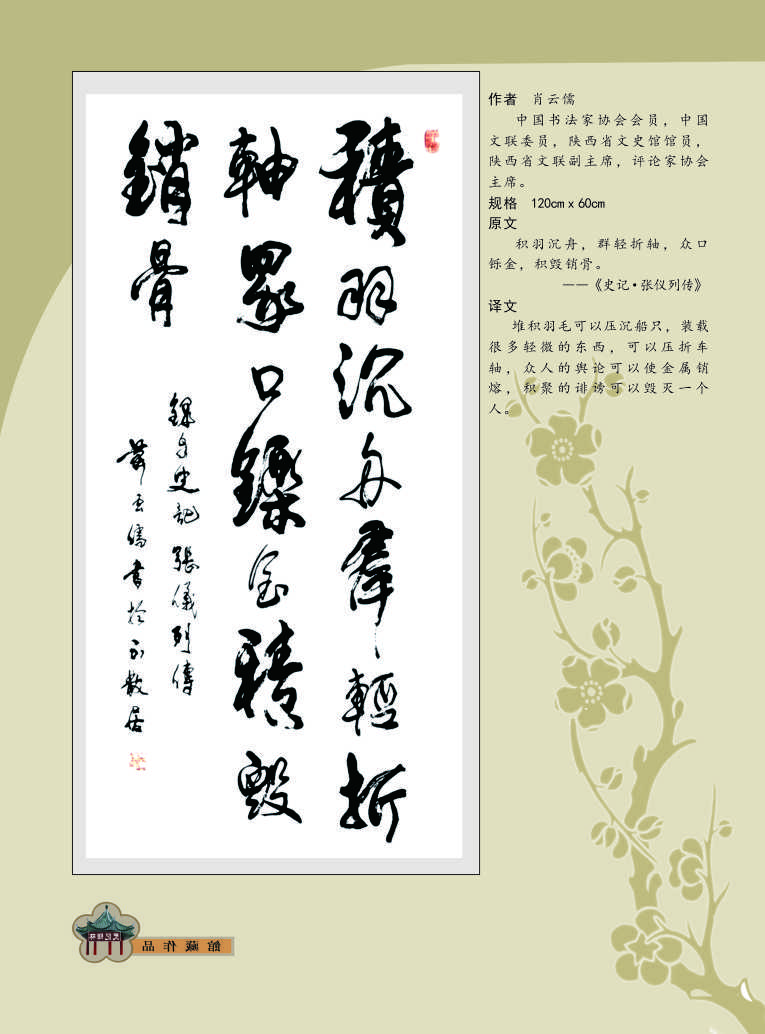 積羽沉舟羣輕折
軸眾口鑠金積毀
銷骨
錄自史記張儀列傳
蕭雲儒書於不散居
作者 肖云儒
中国书法家协会会员，中国
文联委员，陕西省文史馆馆员，
陕西省文联副主席，评论家协会
主席。
规格 120cm x 60cm
原文
积羽沉舟，群轻折轴，众口
铄金，积毁销骨。
——《史记·张仪列传》
译文
堆积羽毛可以压沉船只，装载
很多轻微的东西，可以压折车
轴，众人的舆论可以使金属销
熔，积聚的诽谤可以毁灭一个
人。
館藏作品